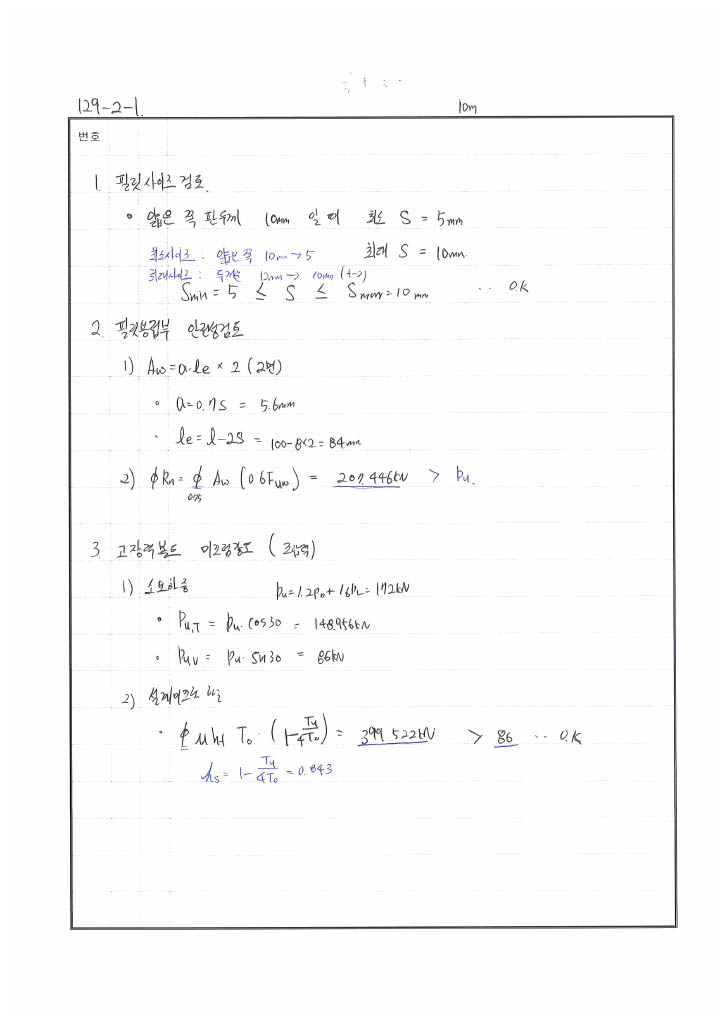 129-2-1.
10m
번호
1. 필릿사이즈 검토
• 얇은 쪽 판두께 10mm 일 때 최소 S = 5mm
최대 S = 10mm.
최소사이즈 : 얇은쪽 10mm → 5
최대사이즈 : 두꺼운 12mm → 10mm (t-2)
Smin = 5 ≤ S ≤ Smax = 10 mm ∙∙ O.K
2. 필릿용접부 안전성검토
1) Aw = a·le × 2 (2면)
• a = 0.7S = 5.6mm
• le = l-2S = 100-8×2 = 84mm
2) ϕRn = ϕ Aw (0.6Fuw) = 207.446kN > Pu.
0.75
3. 고장력볼트 미끄럼강도 (조합력)
1) 소요하중 Pu = 1.2PD + 1.6PL = 172kN
• Pu,T = Pu·cos30 = 148.956kN
• Pu,v = Pu·sin30 = 86kN
2) 설계미끄럼
• ϕ μ hf To·(1-Tu/4To) = 399.522kN > 86 ∙∙ O.K
hs = 1 - Tu/4To = 0.843